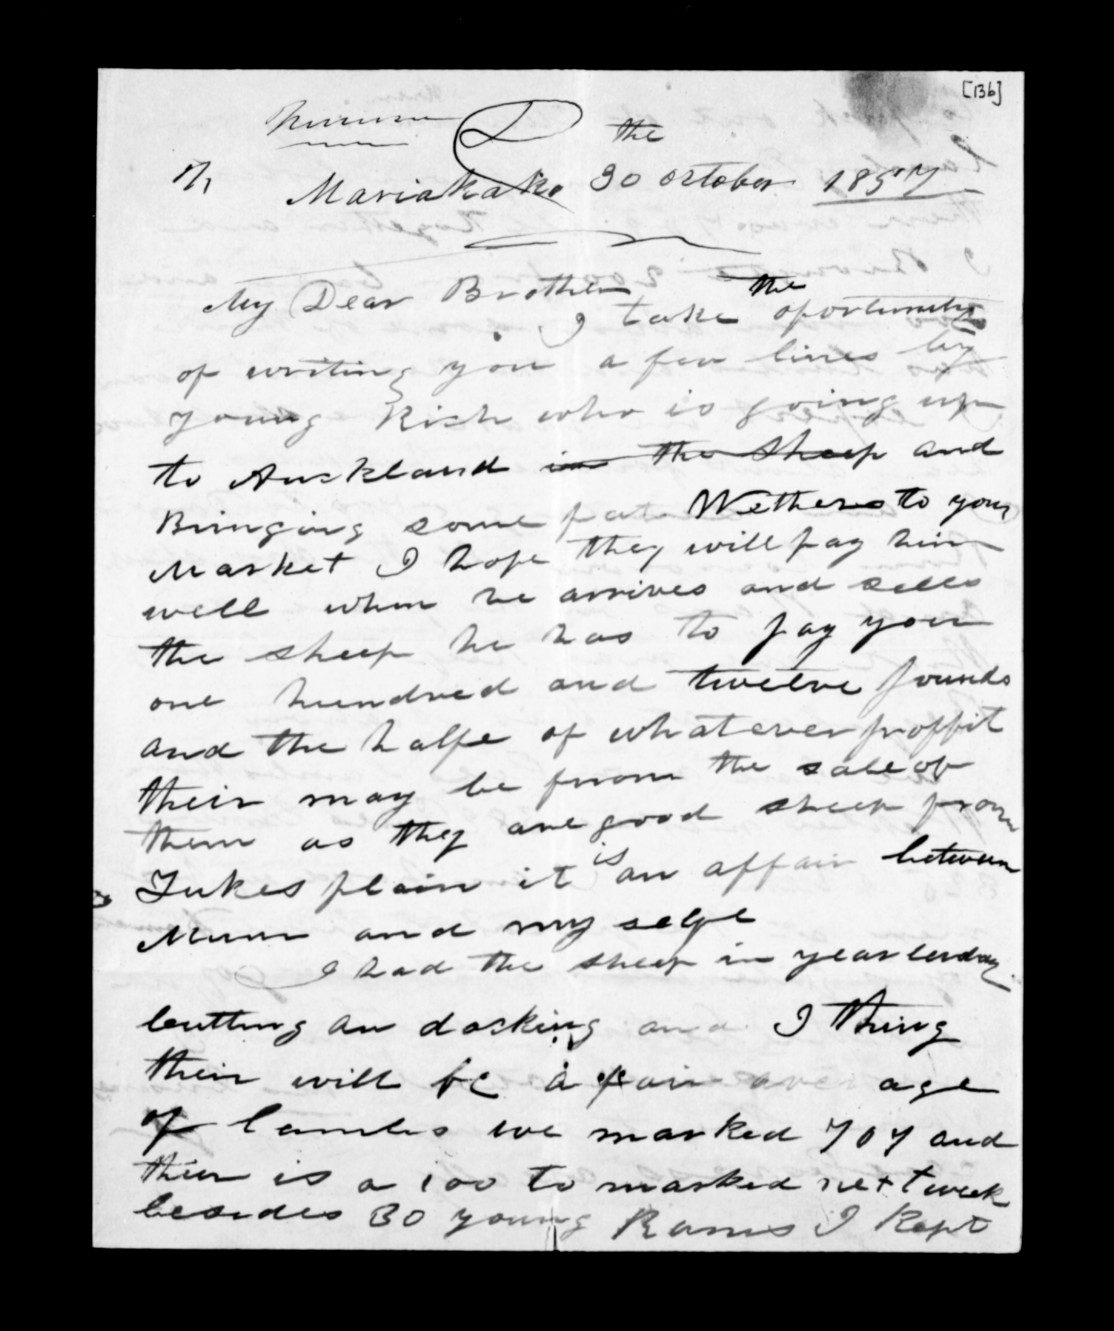 [136]
the
Mariakako 30 october 1857
My Dear Brother
I take the oportunity
of writing you a few lines by
Young Rich who is going up
to Auckland in the sheep and
Bringing some fat Wethers to your
Market I hope they will pay him
well when he arrives and sells
the sheep he has to pay you
one hundred and twelve pounds
and the halfe of whatever proffit
their may be from the sale of
them as they are good sheep from
Tukes plain it is an affair between
Munn and my selfe
I had the sheep in yearterday
cutting an docking and I thing
their will be a fair aver age
of lambs we marked 707 and
their is a 100 to marked next week
besides 30 young Rams I Kept